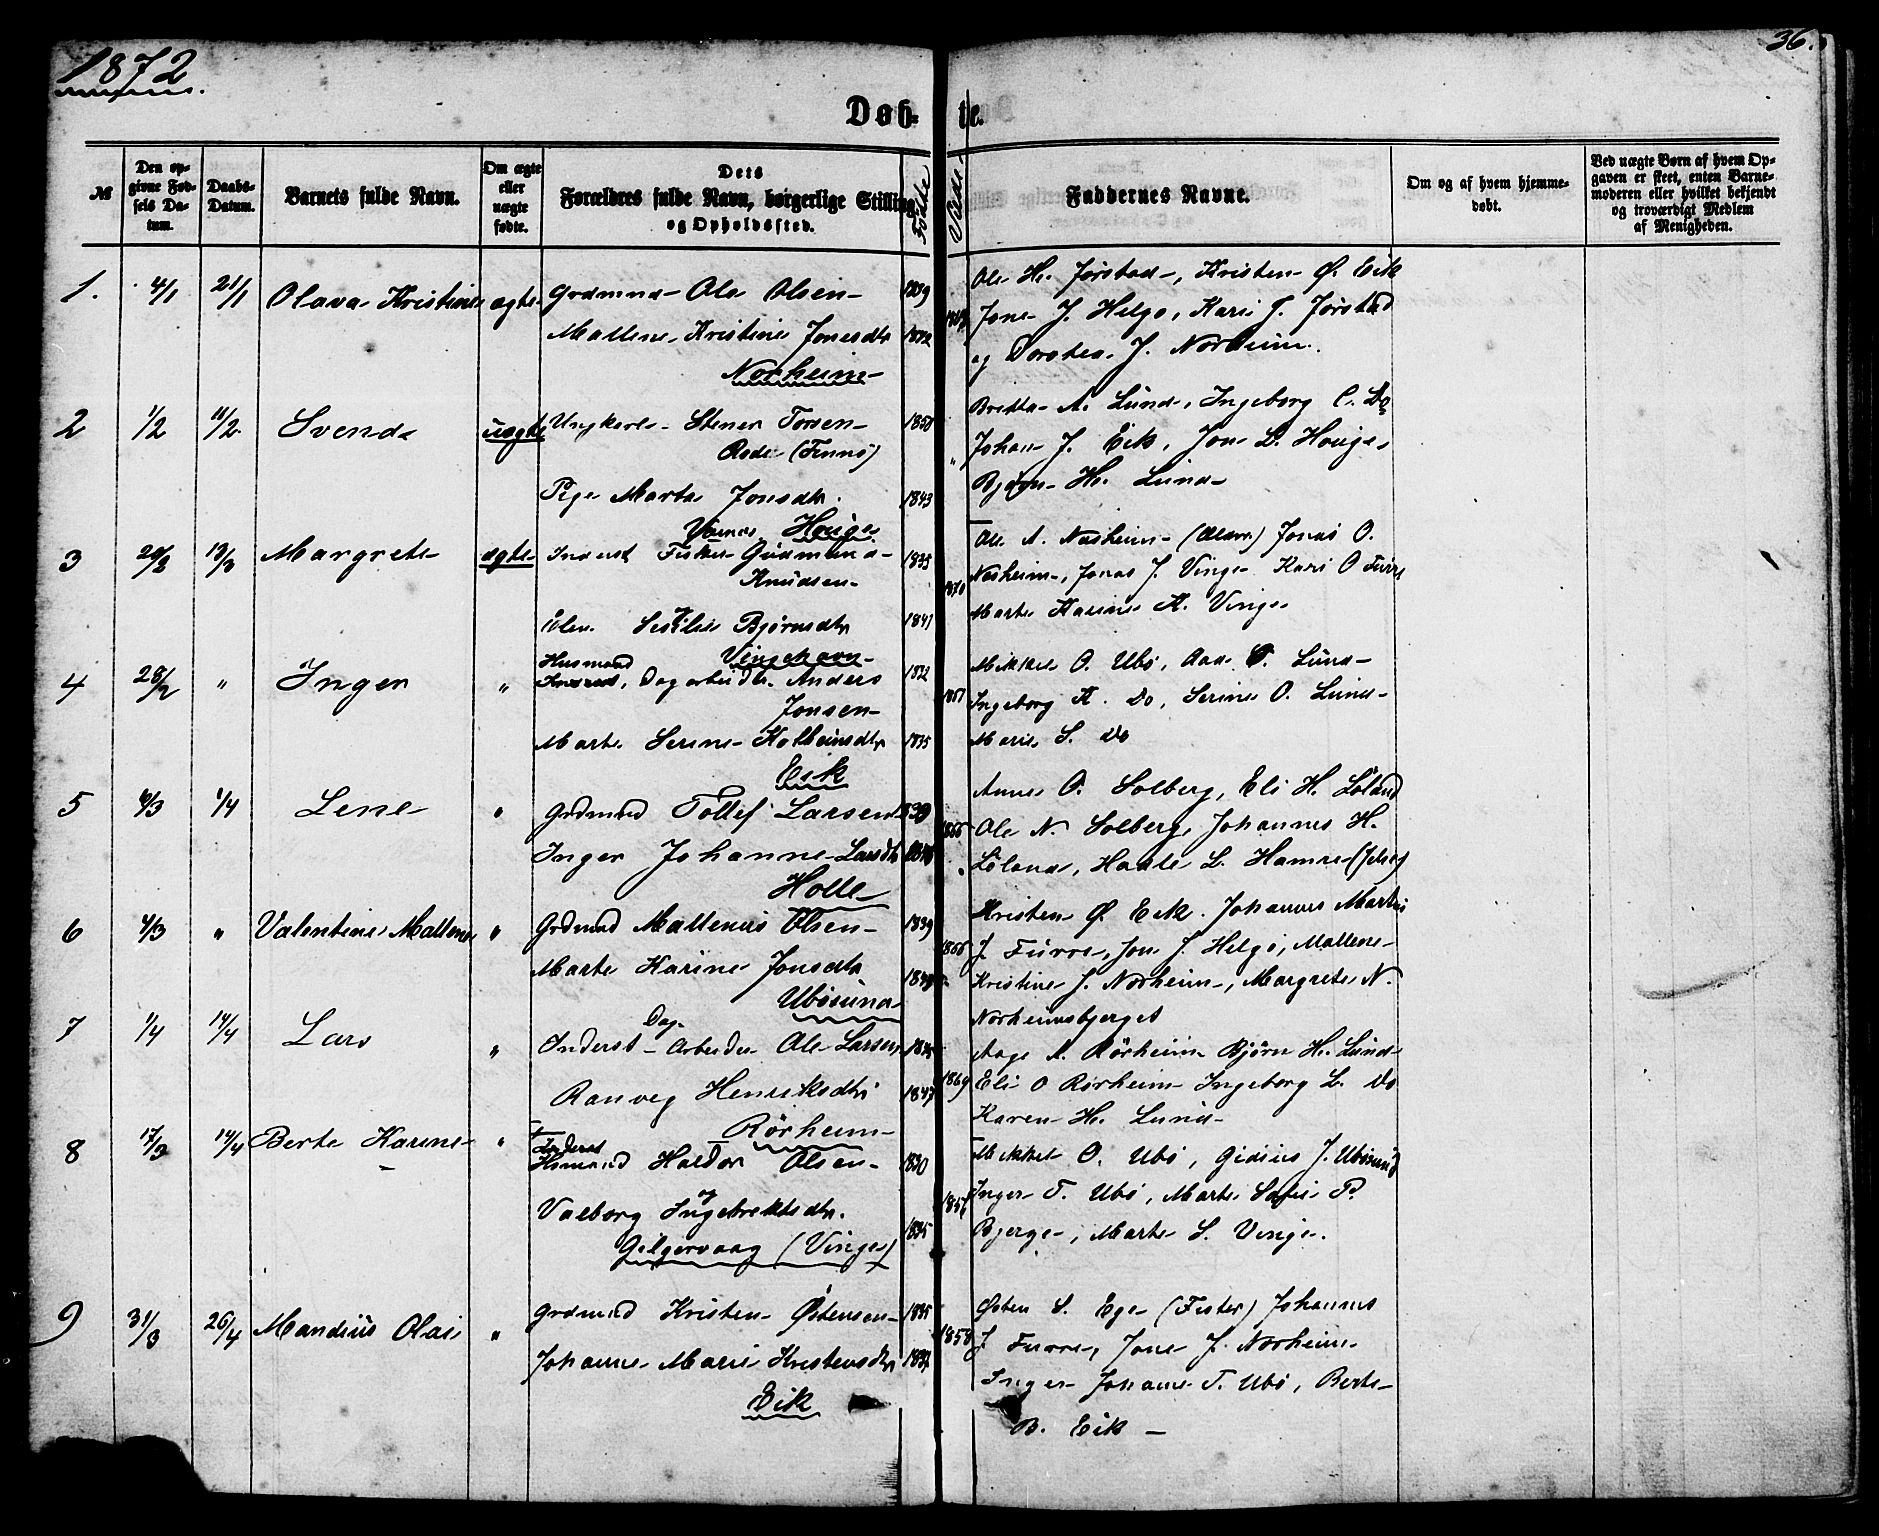 1872.
36.
Døb- te.
№
Den opgivne Fødsels Datum.
Daabs-Datum.
Barnets fulde Navn.
Om ægte eller uægte fødte.
Dets Forældres fulde Navn, borgerlige Stilling og Opholdssted.
Födte
Viede
Faddernes Navne.
Om og af hvem hjemmedøbt.
Ved uægte Børn af hvem Opgaven er skeet, enten Barnemoderen eller hvilket bekjendt og troværdigt Medlem af Menigheden.
1. 4/1 21/1 Olava Kristine ægte Grdmnd Ole Olsen 1839
Mallene Kristine Jonesdtr 1842
Norheim
Ole H. Jørstad, Kristen Ø. Eik
Jone J. Helgø, Kari J. Jørstad
og Dorthea J. Norheim.
2 1/2 11/2 Svend uægte Ungkarl Stener Torsen 1850
Rode (Finnö)
Pige Marta Jonsdtr 1843
Houge
Britta A. Lund, Ingeborg C. Do
Johan J. Eik, Jon L. Houge
Bjørn H. Lund
3 20/2 13/3 Margrete ægte Inderst Fisker Gudmund 1835
Knudsen
Sesilie Björnsdtr 1841
Vingehavn
1870
Ole A. Nesheim Jonas O.
Nesheim, Jonas J. Vinge Kari O Furre
Marte Karine K. Vinge
4 28/2 " Inger " Husmand Dagarbeider Anders 1832
Jonsen
Marte Serine Kolbeinsdtr 1835
Eik
1857
Mikkel O. Ubö, Aad O. Lund
Ingeborg K. Do, Serine O. Lund
Marie S. Do
5 10/3 1/4 Lene " Grdmnd Tollef Larsen 1839
Inger Johanne Larsdtr
Holle
1866
Anne O. Solberg, Eli H. Löland
Ole N. Solberg, Johannes H.
Löland, Hadle L. Hamre (Jelse)
6 4/3 " Valentine Mallene " Grdmnd Mallenius Olsen 1839
Marte Karine Jonsdtr
Ubösund
1866
Kristen Ø Eik. Johannes Martin
J. Furre, Jon J. Helgö, Mallene
Kristine J. Norheim, Margrete N.
Norheimsbjerget
7 1/4 14/4 Lars " Inderst Dag-Arbeider Ole Larsen
Ranveg Henriksdtr 1847
Rörheim
1869
Aage A. Rörheim Björn H. Lund
Eli O Rörheim Ingeborg L. Do
Karen H. Lund
8 17/3 14/4 Berte Karine " Inderst Husmand Haldor Olsen 1830
Valborg Ingebrektsdtr. 1835
Gilgervaag (Vinge)
Mikkel O. Ubö, Gidius J. Ubösund
Inger T. Ubö, Marte Sofie P.
Bjerge, Marte S. Vinge.
9 31/3 26/4 Mandius Olai " Grdmnd Kristen Östensen 1835
Johanne Marie Kristensdtr
Eik
1858
Østen S. Ege (Fister) Johannes
J. Furre, Jone J. Norheim
Inger Johanne T. Ubö, Berte
B. Eik